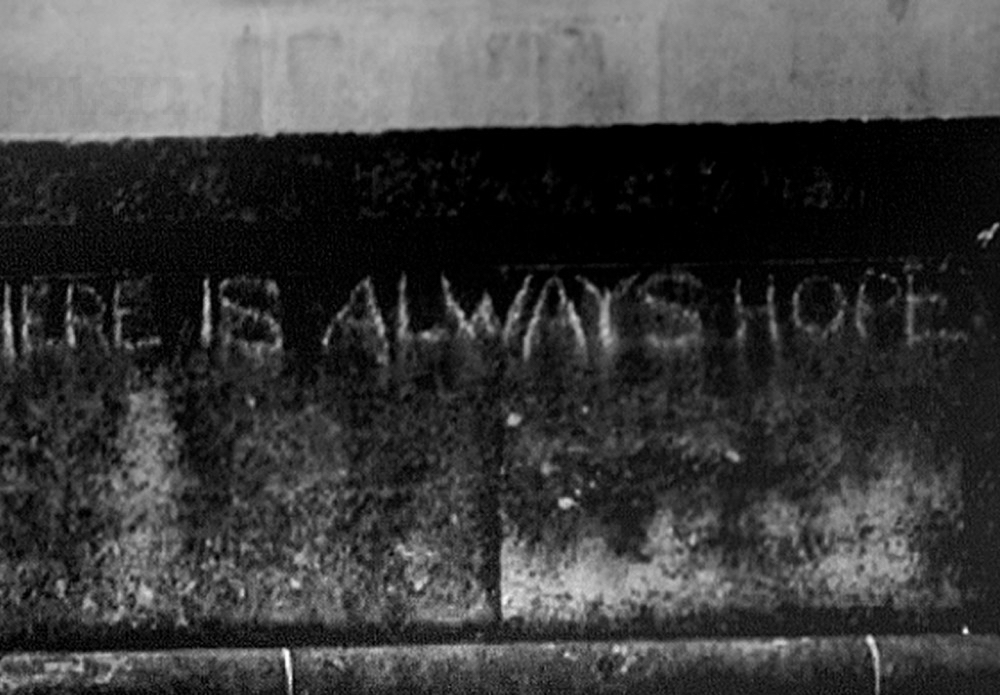 HERE IS ALWAYS HOPE